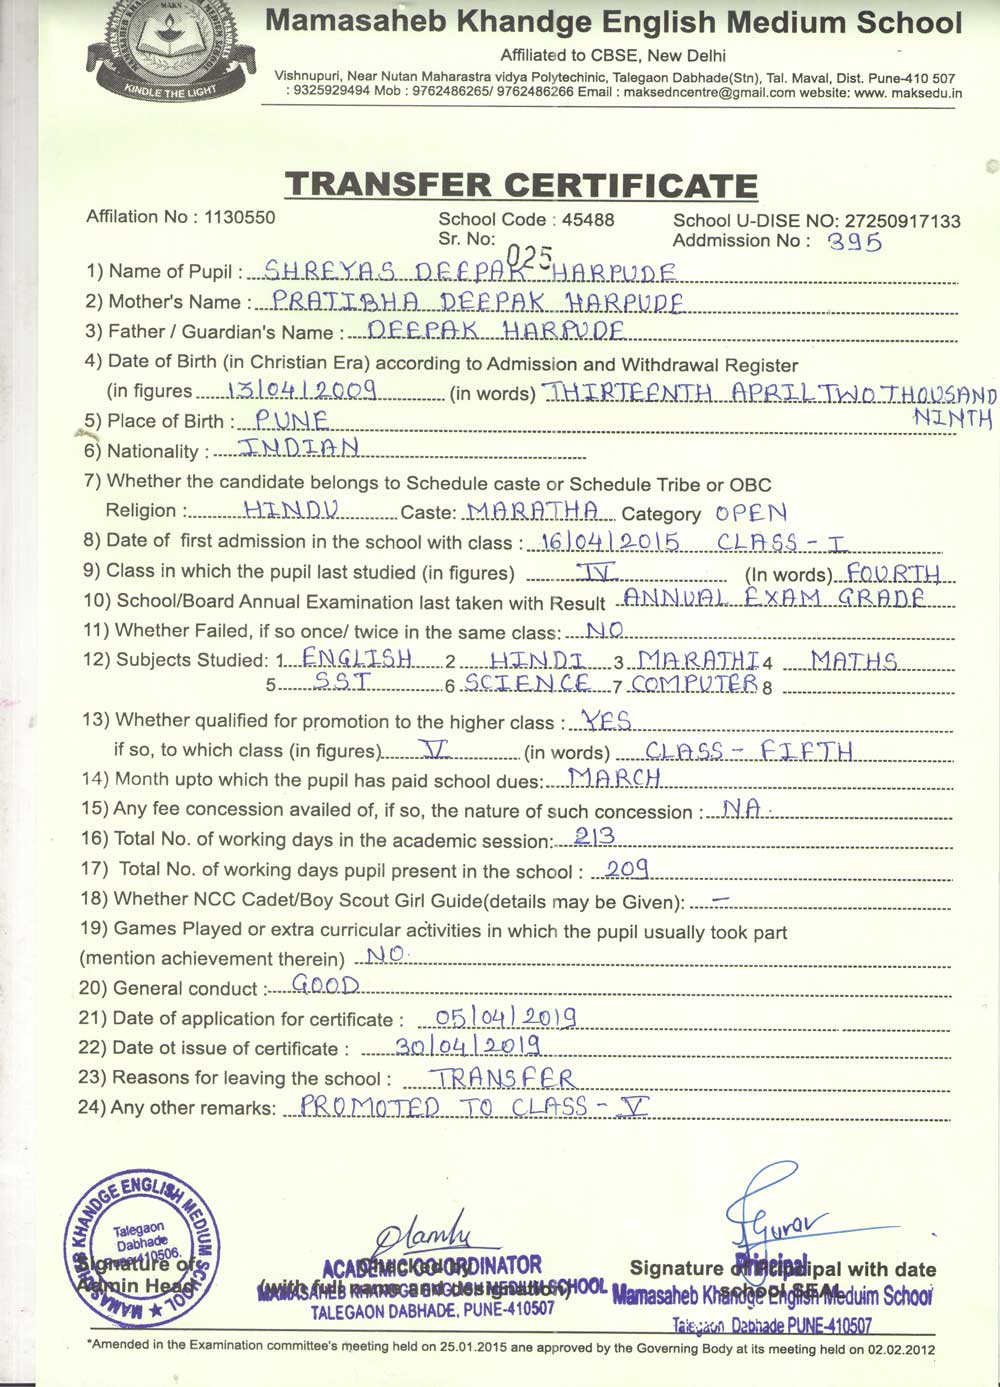 Mamasaheb Khandge English Medium School
Affiliated to CBSE, New Delhi
Vishnupuri, Near Nutan Maharastra vidya Polytechinic, Talegaon Dabhade(Stn), Tal. Maval, Dist. Pune-410 507
: 9325929494 Mob : 9762486265/ 9762486266 Email : maksedncentre@gmail.com website: www. maksedu.in
MAKS
KINDLE THE LIGHT
TRANSFER CERTIFICATE
Affilation No : 1130550 School Code : 45488 School U-DISE NO: 27250917133
Sr. No: 025 Addmission No : 395
1) Name of Pupil : SHREYAS DEEPAK HARPUDE
2) Mother's Name : PRATIBHA DEEPAK HARPUDE
3) Father / Guardian's Name : DEEPAK HARPUDE
4) Date of Birth (in Christian Era) according to Admission and Withdrawal Register
(in figures 13/04/2009 (in words) THIRTEENTH APRIL TWO THOUSAND
NINTH
5) Place of Birth : PUNE
6) Nationality : INDIAN
7) Whether the candidate belongs to Schedule caste or Schedule Tribe or OBC
Religion : HINDU Caste: MARATHA Category OPEN
8) Date of first admission in the school with class : 16/04/2015 CLASS - I
9) Class in which the pupil last studied (in figures) IV (In words) FOURTH
10) School/Board Annual Examination last taken with Result ANNUAL EXAM GRADE
11) Whether Failed, if so once/ twice in the same class: NO
12) Subjects Studied: 1 ENGLISH 2 HINDI 3 MARATHI 4 MATHS
5 SST 6 SCIENCE 7 COMPUTER 8
13) Whether qualified for promotion to the higher class : YES
if so, to which class (in figures) V (in words) CLASS - FIFTH
14) Month upto which the pupil has paid school dues: MARCH
15) Any fee concession availed of, if so, the nature of such concession : NA.
16) Total No. of working days in the academic session: 213
17) Total No. of working days pupil present in the school : 209
18) Whether NCC Cadet/Boy Scout Girl Guide(details may be Given): -
19) Games Played or extra curricular activities in which the pupil usually took part
(mention achievement therein) NO.
20) General conduct : GOOD
21) Date of application for certificate : 05/04/2019
22) Date ot issue of certificate : 30/04/2019
23) Reasons for leaving the school : TRANSFER
24) Any other remarks: PROMOTED TO CLASS - V
KHANDGE ENGLISH MEDIUM SCHOOL
Talegaon
Dabhade
410506.
Signature of
Admin Head
ACADEMIC COORDINATOR
(with full name and designation)
MAMASAHEB KHANDGE ENGLISH MEDIUM SCHOOL
TALEGAON DABHADE, PUNE-410507
Gurav
Signature of Principal with date
Principal
school SEAL
Mamasaheb Khandge English Meduim School
Talegaon Dabhade PUNE-410507
*Amended in the Examination committee's meeting held on 25.01.2015 ane approved by the Governing Body at its meeting held on 02.02.2012